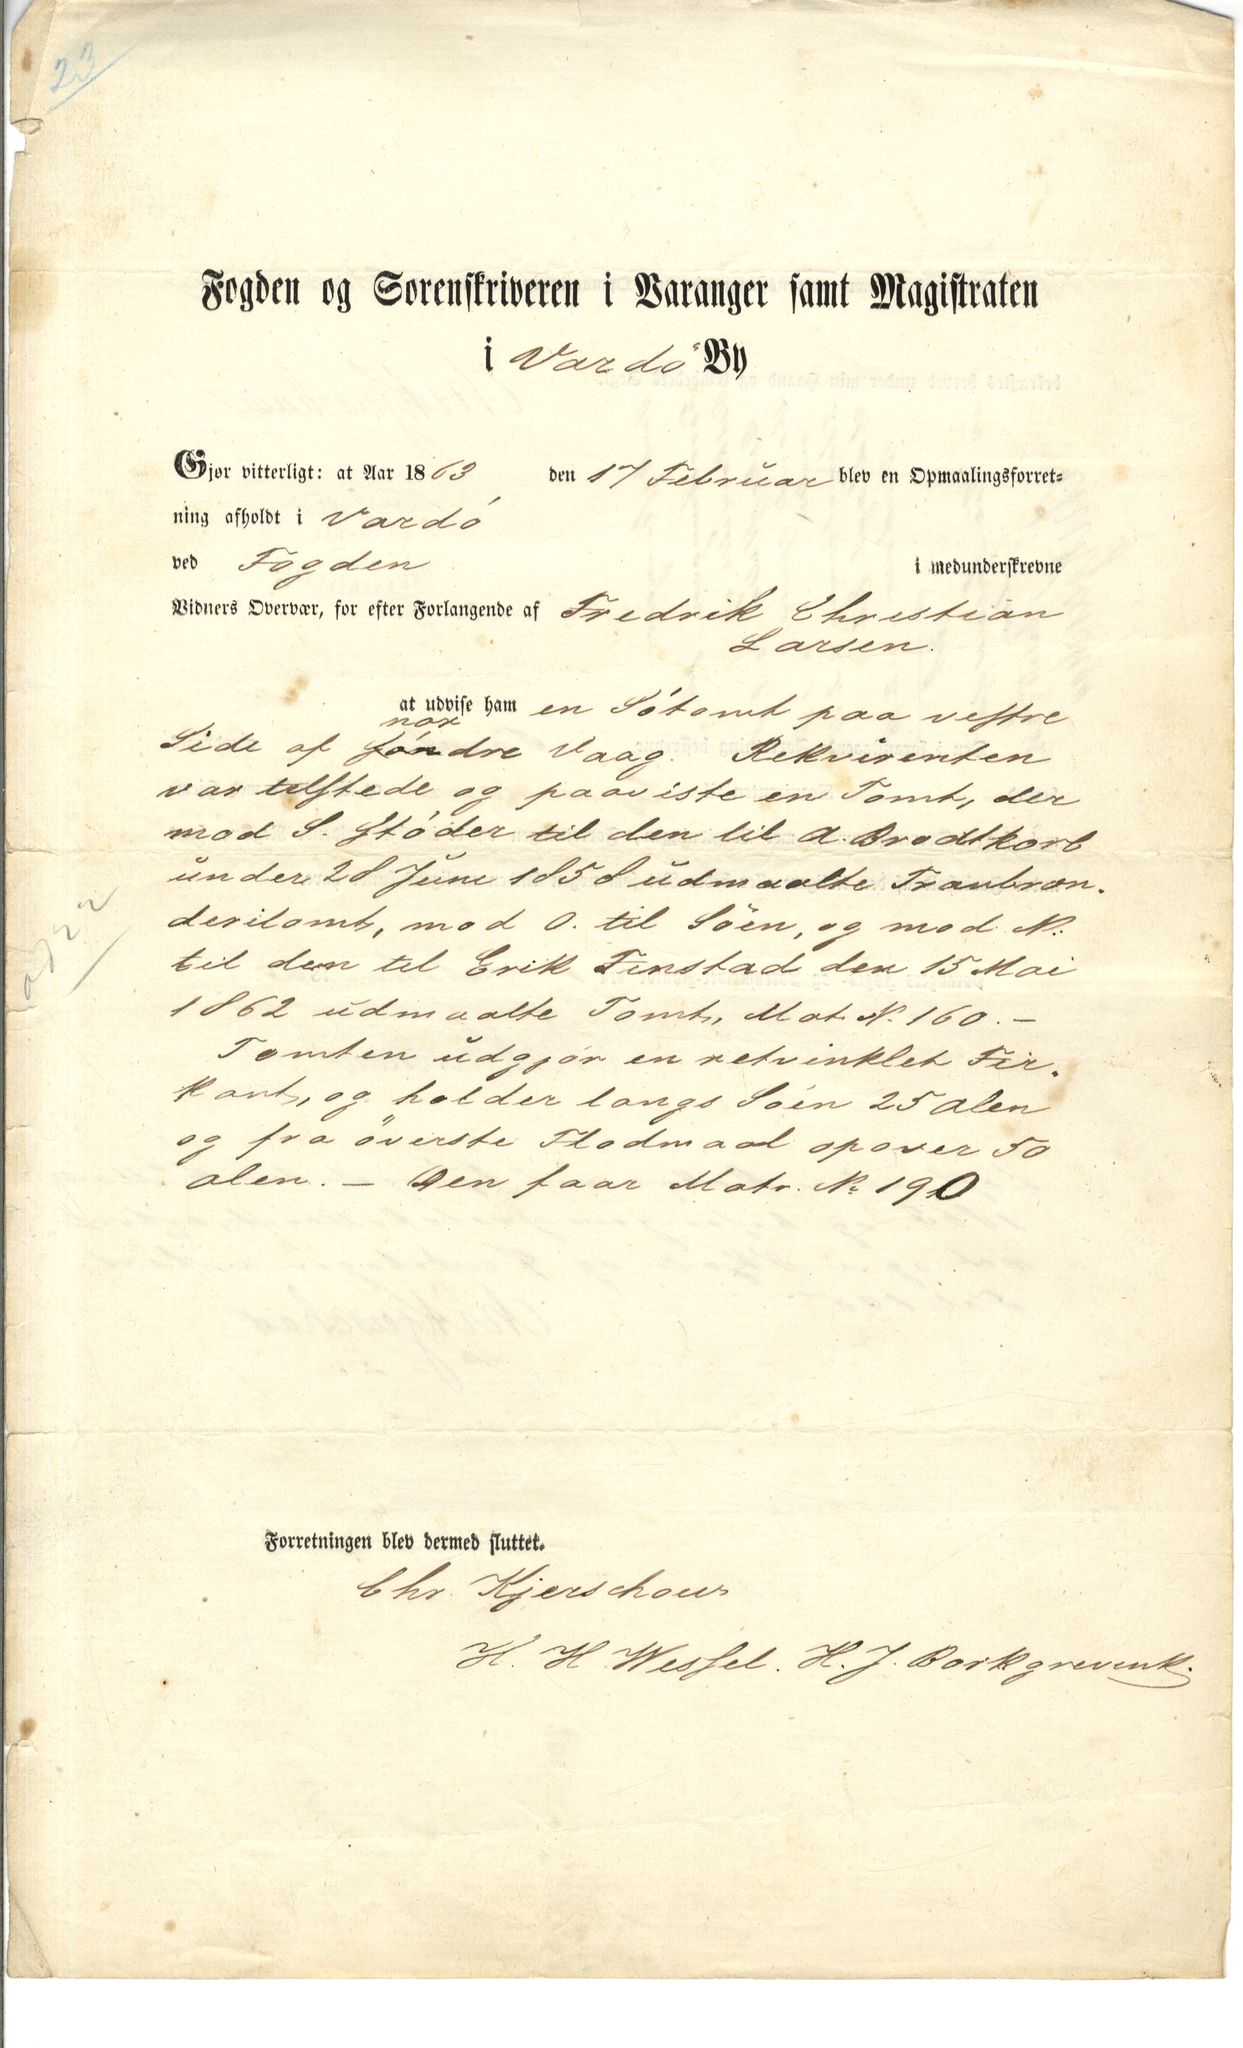 23
Fogden og Sorenskriveren i Varanger samt Magistraten
i Vardö By
Gjør vitterligt: at Aar 1863 den 17 Februar blev en Opmaalingsforret-
ning afholdt i Vardó
ved Fogden i medunderskrevne
Vidners Overvær, for efter Forlangende af Fredrik Christian
Larsen.
at udvise ham en Sótomt paa vestre
nor
Side af søndre Vaag. Rekvirenten
var tilstede og paaviste en Tomt, der
mod S. stóder til den til A. Brodtkorb
under 28 Juni 1858 udmaalte Tranbræn-
deritomt, mod O. til Söen, og mod N.
til den til Erik Finstad den 15 Mai
1862 udmaalte Tomt, Mat N. 160. –
Tomten udgjør en retvinklet Fir-
kant, og holder langs Sóen 25 Alen
og fra överste Flodmaal opover 50
alen. – Den faar Matr. N: 190
Forretningen blev dermed sluttet.
Chr. Kjerschow
H. H. Wessel. H. J. Borkgrevink.